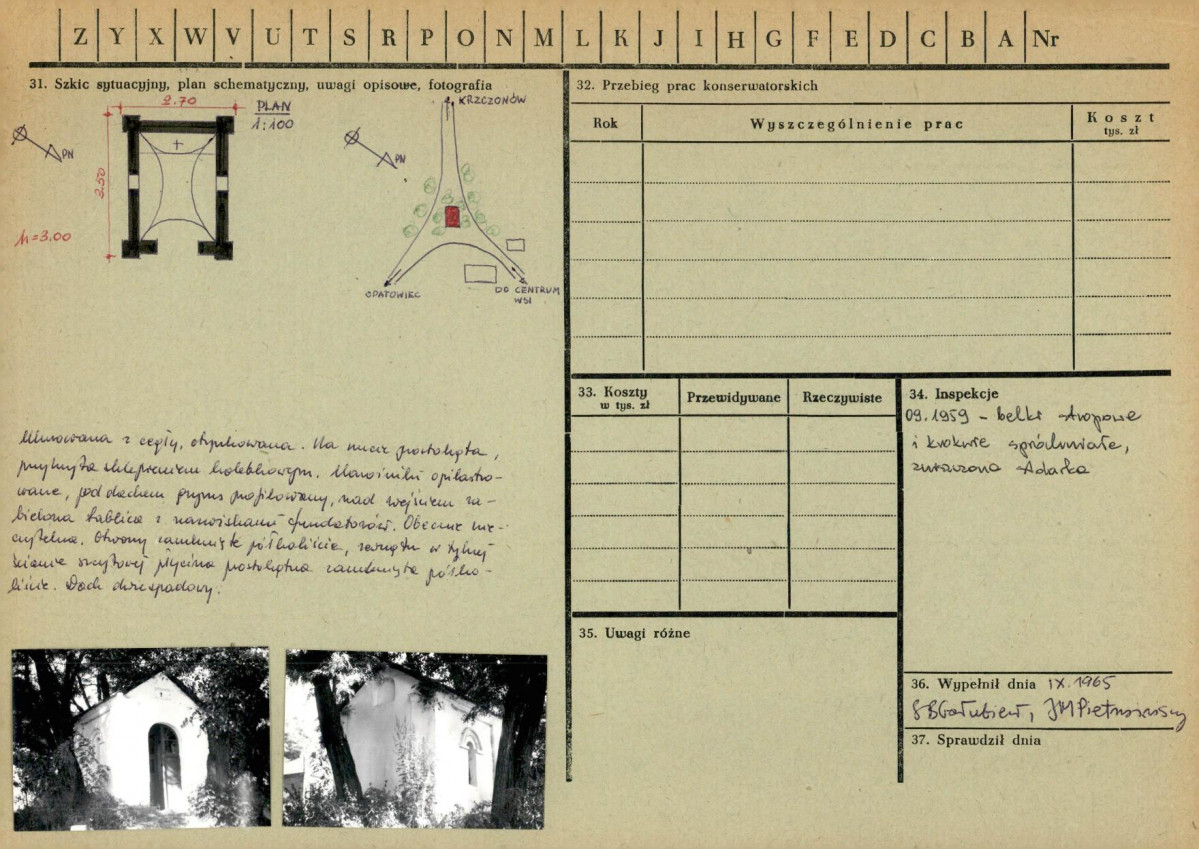 Z Y X W V U T S R P O N M L K J I H G F E D C B A Nr
31. Szkic sytuacyjny, plan schematyczny, uwagi opisowe, fotografia
2.70
PLAN
1:100
PN
3.50
h=3.00
KRZCZONÓW
PN
OPATOWIEC
DO CENTRUM
WSI
Murowana z cegły, otynkowana. Na rzucie prostokąta,
przykryta sklepieniem kolebkowym. Narożniki opilastro-
wane, pod dachem gzyms profilowany, nad wejściem za-
bielona tablica z nazwiskami fundatorów. Obecnie nie-
czytelna. Otwory zamknięte półkoliście, zewnątrz w tylnej
ścianie szczytowej płycina prostokątna zamknięta półko-
liście. Dach dwuspadowy.
32. Przebieg prac konserwatorskich
Rok
Wyszczególnienie prac
Koszt
tys. zł
33. Koszty
w tys. zł
Przewidywane
Rzeczywiste
34. Inspekcje
09.1959 – belki stropowe
i krokwie spróchniałe,
zniszczona
35. Uwagi różne
36. Wypełnił dnia IX.1965
37. Sprawdził dnia